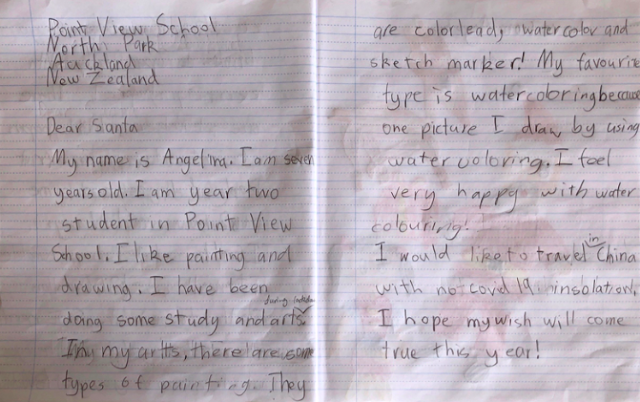 Point View School
North Park
Auckland
New Zealand
Dear Santa
My name is Angelina. I am seven
years old. I am year two
student in Point View
School. I like painting and
drawing. I have been
doing some study and arts
In my artts, there are some
types of painting. They
are colorlead, watercolor and
sketch marker! My favourite
type is watercoloring because
one picture I draw by using
water coloring. I feel
very happy with water
colouring!
I would like to travel in China
with no covd 19 insolation.
I hope my wish will come
true this year!